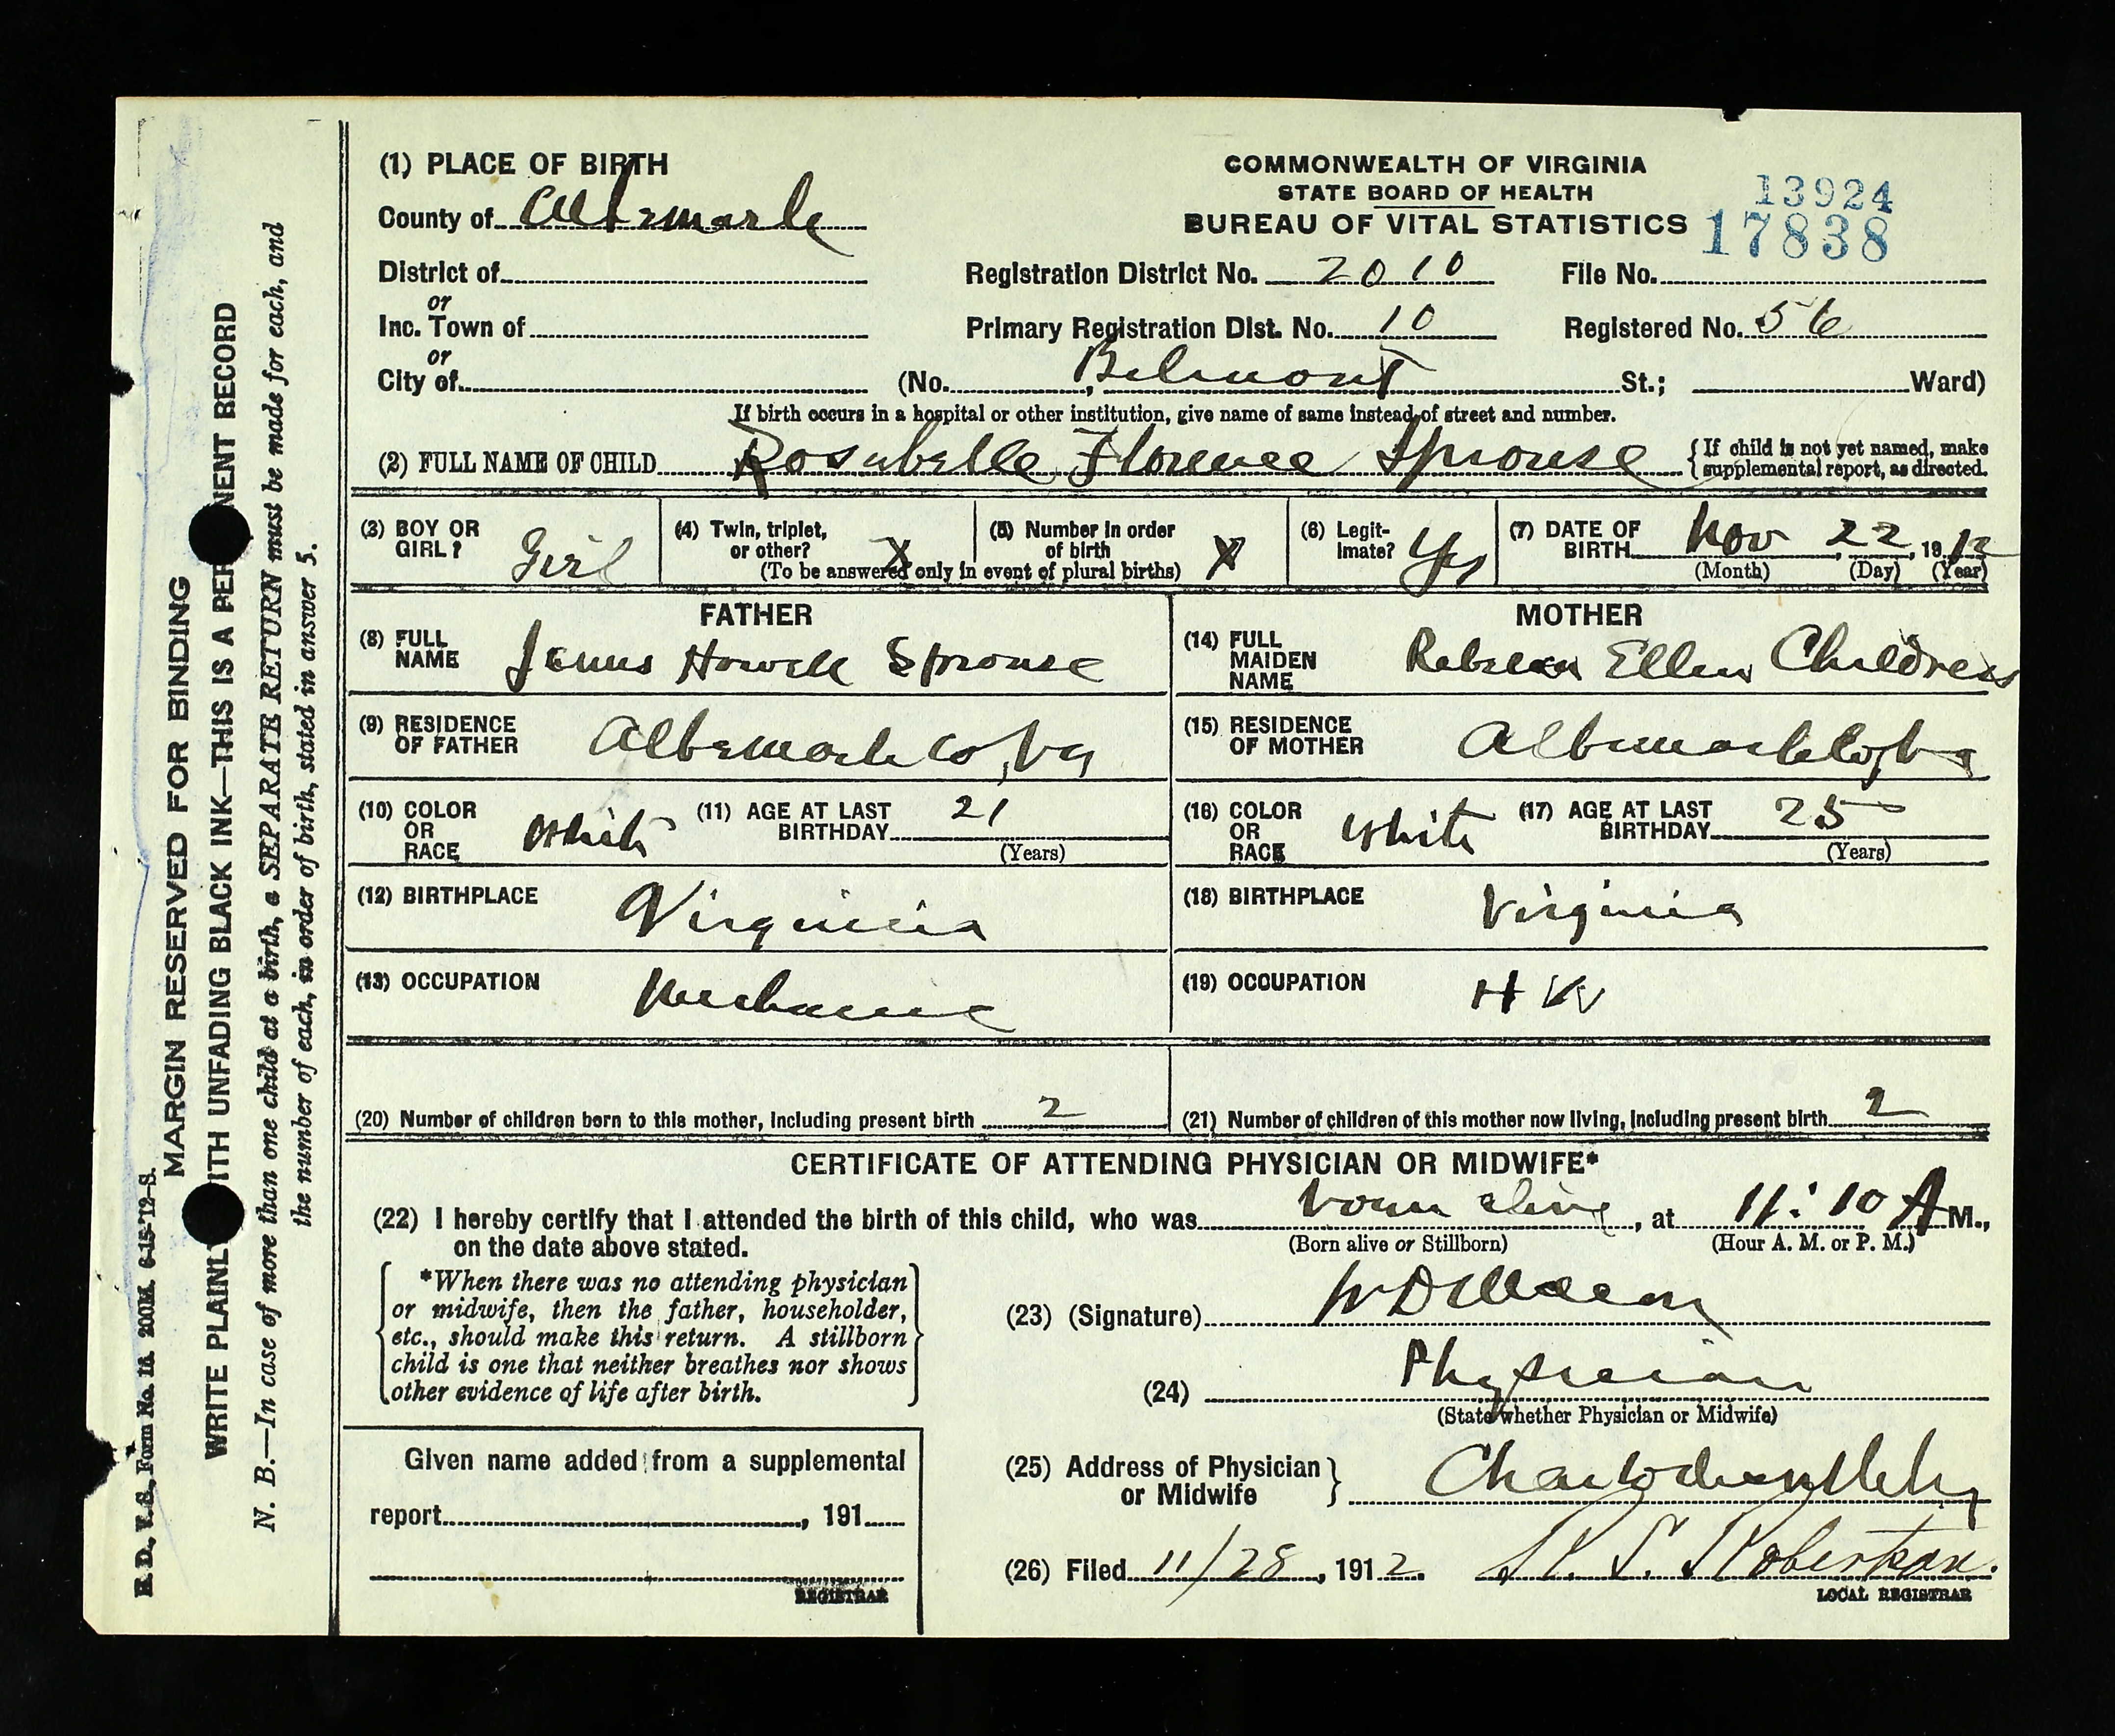 (1) PLACE OF BIRTH
County of Albemarle
District of
or
Inc. Town of
or
City of
COMMONWEALTH OF VIRGINIA
STATE BOARD OF HEALTH
BUREAU OF VITAL STATISTICS
13924
17838
Registration District No. 2010 File No.
Primary Registration Dist. No. 10 Registered No. 56
(No. , Belmont St.; Ward)
If birth occurs in a hospital or other institution, give name of same instead of street and number.
(2) FULL NAME OF CHILD Rosabelle Florence Sprouse { If child is not yet named, make
supplemental report, as directed.
(3) BOY OR GIRL? Girl
(4) Twin, triplet, or other? X
(5) Number in order of birth X
(To be answered only in event of plural births)
(6) Legit-
imate? Yes
(7) DATE OF
BIRTH Nov 22, 1912
(Month) (Day) (Year)
FATHER
(8) FULL
NAME James Howell Sprouse
(9) RESIDENCE
OF FATHER Albemarle Co, Va
(10) COLOR
OR
RACE White
(11) AGE AT LAST
BIRTHDAY 21
(Years)
(12) BIRTHPLACE Virginia
(13) OCCUPATION Mechanic
MOTHER
(14) FULL
MAIDEN
NAME Rebecca Ellen Childress
(15) RESIDENCE
OF MOTHER Albemarle Co, Va
(16) COLOR
OR
RACE White
(17) AGE AT LAST
BIRTHDAY 25
(Years)
(18) BIRTHPLACE Virginia
(19) OCCUPATION H W
(20) Number of children born to this mother, including present birth 2
(21) Number of children of this mother now living, including present birth 2
CERTIFICATE OF ATTENDING PHYSICIAN OR MIDWIFE*
(22) I hereby certify that I attended the birth of this child, who was born alive, at 11:10 A M.,
on the date above stated. (Born alive or Stillborn) (Hour A. M. or P. M.)
*When there was no attending physician
or midwife, then the father, householder,
etc., should make this return. A stillborn
child is one that neither breathes nor shows
other evidence of life after birth.
(23) (Signature)
(24) Physician
(State whether Physician or Midwife)
(25) Address of Physician
or Midwife }
Given name added from a supplemental
report , 191
REGISTRAR
(26) Filed 11/28, 1912. Robertson.
LOCAL REGISTRAR
R. D., V. S., Form No. 12. 200M. 6-15-'12-S.
MARGIN RESERVED FOR BINDING
WRITE PLAINL ITH UNFADING BLACK INK—THIS IS A PER NENT RECORD
N. B.—In case of more than one child at a birth, a SEPARATE RETURN must be made for each, and
the number of each, in order of birth, stated in answer 5.